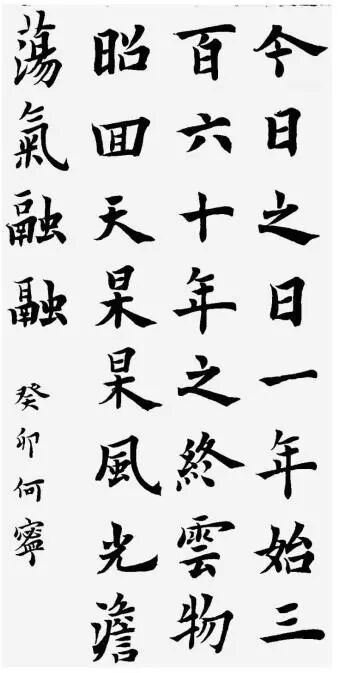 今日之日一年始三
百六十年之終雲物
昭回天杲杲風光澹
蕩氣融融
癸卯何寧